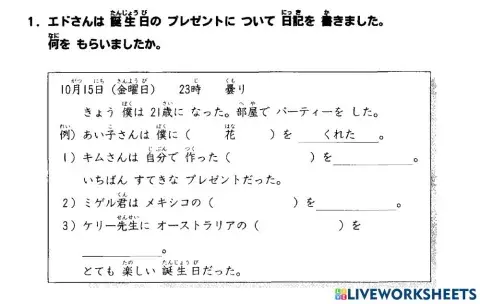 1．エドさんは 誕生日の プレゼントに ついて 日記を 書きました。
何を もらいましたか。
10月15日（金曜日） 23時 曇り
きょう 僕は 21歳に なった。部屋で パーティーを した。
例）あい子さんは 僕に（ 花 ）を くれた 。
1）キムさんは 自分で 作った（ ）を 。
いちばん すてきな プレゼントだった。
2）ミゲル君は メキシコの（ ）を 。
3）ケリー先生に オーストラリアの（ ）を
。
とても 楽しい 誕生日だった。
LIVEWORKSHEETS